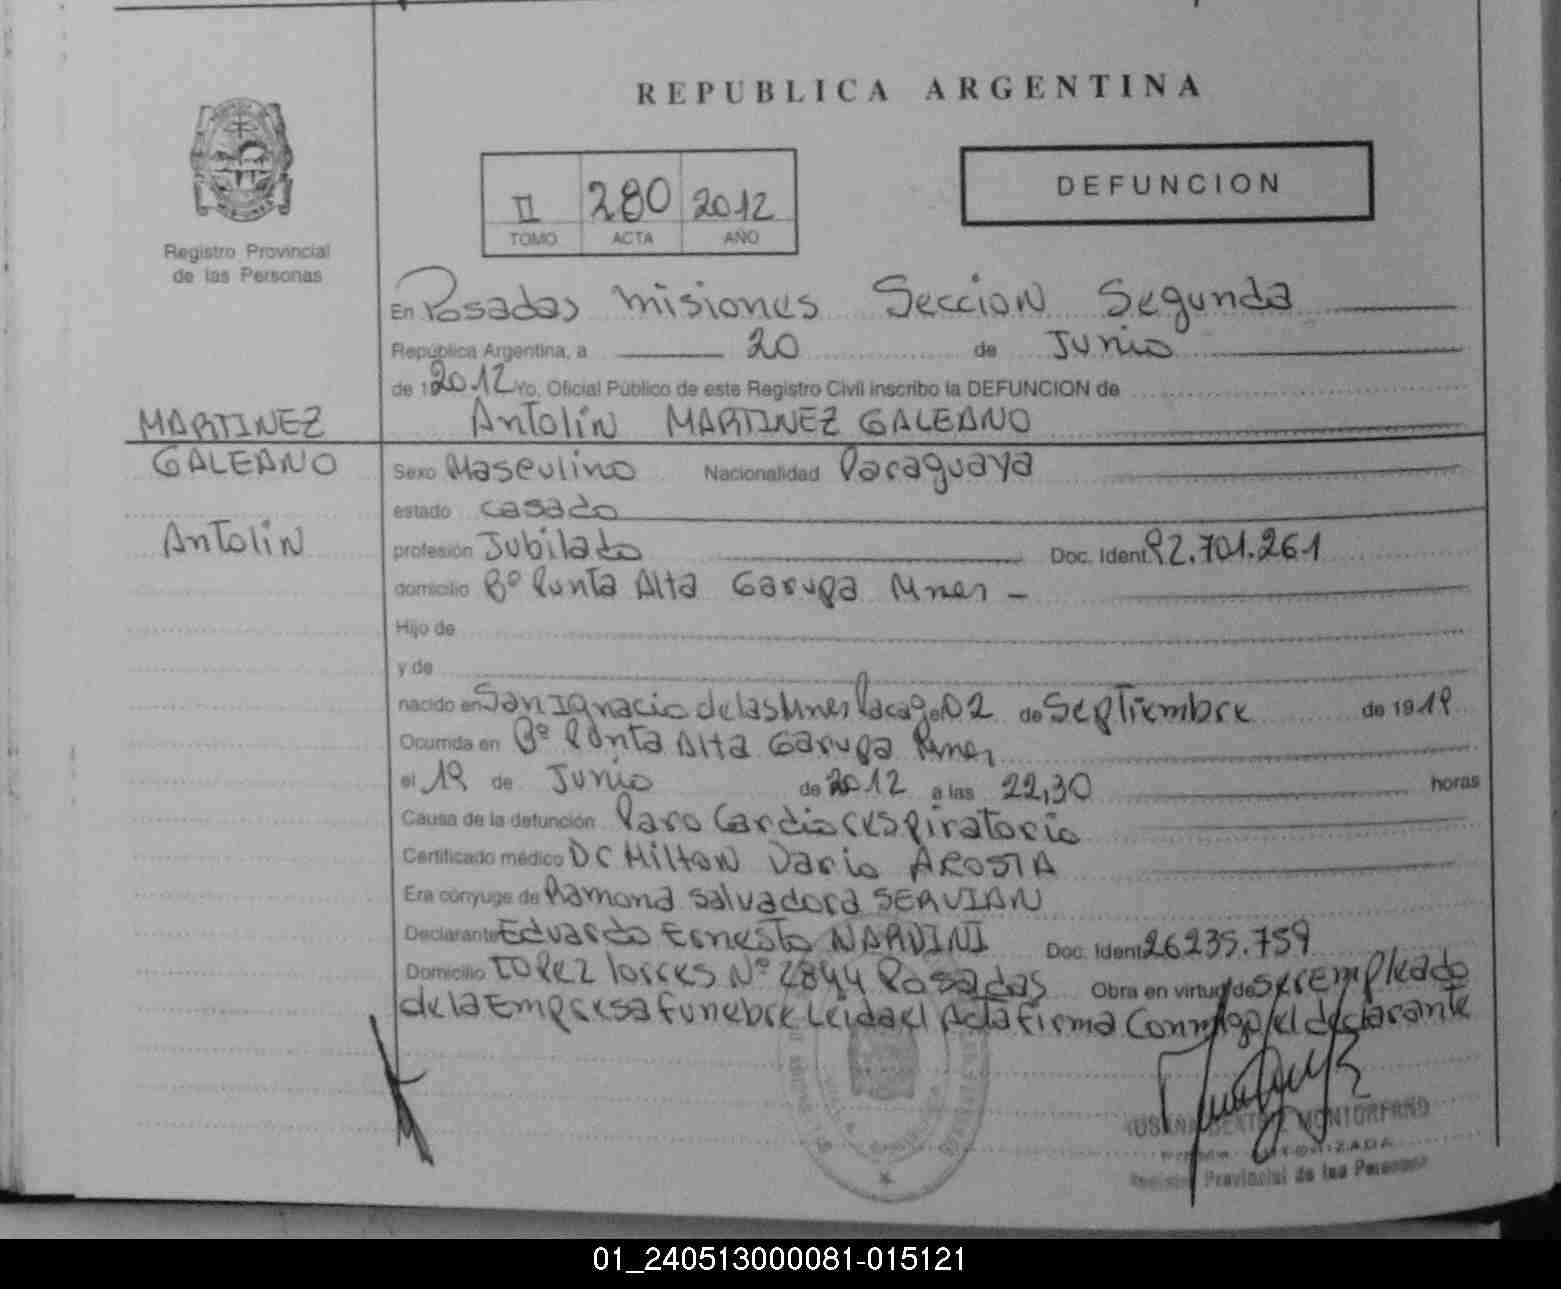 REPUBLICA ARGENTINA
Registro Provincial
de las Personas
II 280 2012
TOMO ACTA AÑO
DEFUNCION
En Posadas Misiones Seccion Segunda
República Argentina, a 20 de Junio
de 1 2012 Yo, Oficial Público de este Registro Civil inscribo la DEFUNCION de
Antolín MARTINEZ GALEANO
MARTINEZ
GALEANO
Antolín
Sexo Masculino Nacionalidad Paraguaya
estado casado
profesión Jubilado Doc. Ident 92.701.261
domicilio Bº Punta Alta Garupa Mnes -
Hijo de
y de
nacido en San Ignacio de las Mnes Parag 02 de Septiembre de 19 19
Ocurrida en Bº Punta Alta Garupa Mnes
el 19 de Junio de 2012 a las 22,30 horas
Causa de la defunción Paro Cardiorespiratorio
Certificado médico Dr Milton Dario AROSTA
Era cónyuge de Ramona Salvadora SERVIAN
Declarante Eduardo Ernesto NARVINI Doc. Ident 26235.759
Domicilio LOPEZ Torres Nº 2844 Posadas Obra en virtud de ser Empleado
de la Empresa Funebre Leida el Acta firma Conmigo el declarante
SUSANA BEATRIZ MONTORFANO
FIRMA AUTORIZADA
Registro Provincial de las Personas
01_240513000081-015121